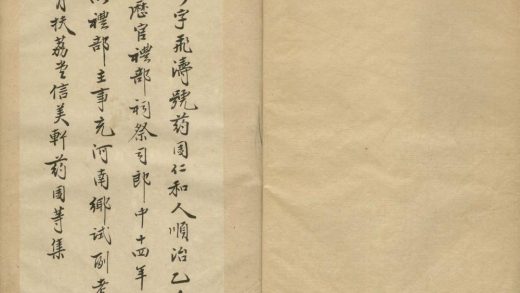 字飛濤號药園仁和人順治乙
歷官禮部祠祭司郎中十四年
禮部主事充河南鄉試副考
扶荔堂信美軒药園等集